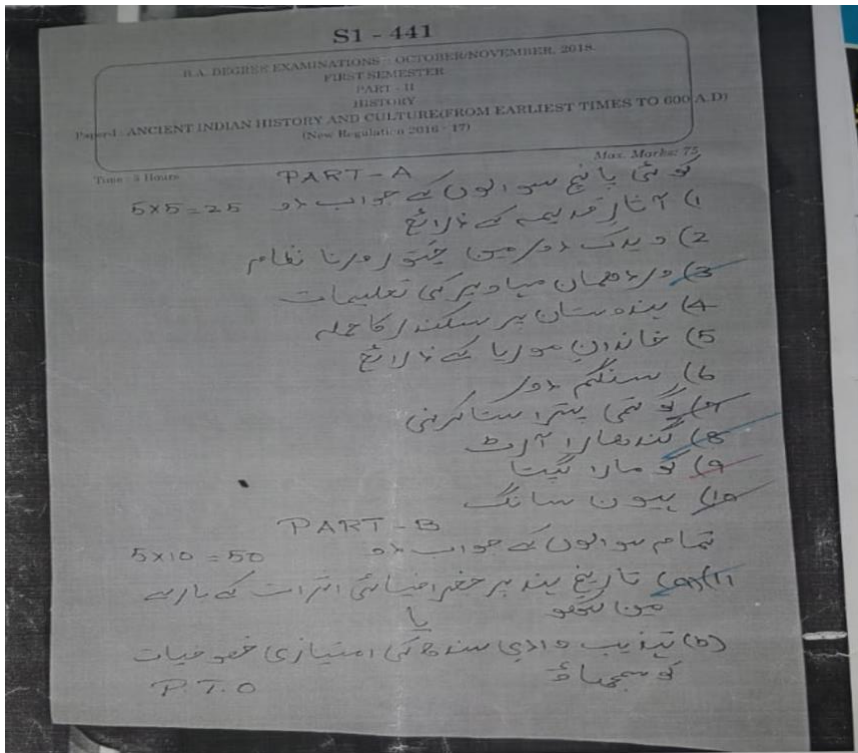 S1 - 441
B.A. DEGREE EXAMINATIONS - OCTOBER/NOVEMBER, 2018.
FIRST SEMESTER
PART - II
HISTORY
Paper-I : ANCIENT INDIAN HISTORY AND CULTURE(FROM EARLIEST TIMES TO 600 A.D)
(New Regulation 2016 - 17)
Time : 3 Hours Max. Marks: 75
PART - A
کوئی پانچ سوالوں کے جواب دو 5×5=25
1) آثار قدیمہ کے ذرائع
2) ویدک دور میں چتور ورنا نظام
3) وردھمان مہاویر کی تعلیمات
4) ہندوستان پر سکندر کا حملہ
5) خاندان موریا کے ذرائع
6) سنگم دور
7) گوتمی پترا ستاکرنی
8) گندھارا آرٹ
9) کومارا گپتا
10) ہیون سانگ
PART - B
تمام سوالوں کے جواب دو 5×10=50
11) (a) تاریخ ہند پر جغرافیائی اثرات کے بارے
میں لکھو
یا
(b) تہذیب وادی سندھ کی امتیازی خصوصیات
کو سمجھاؤ
P.T.O